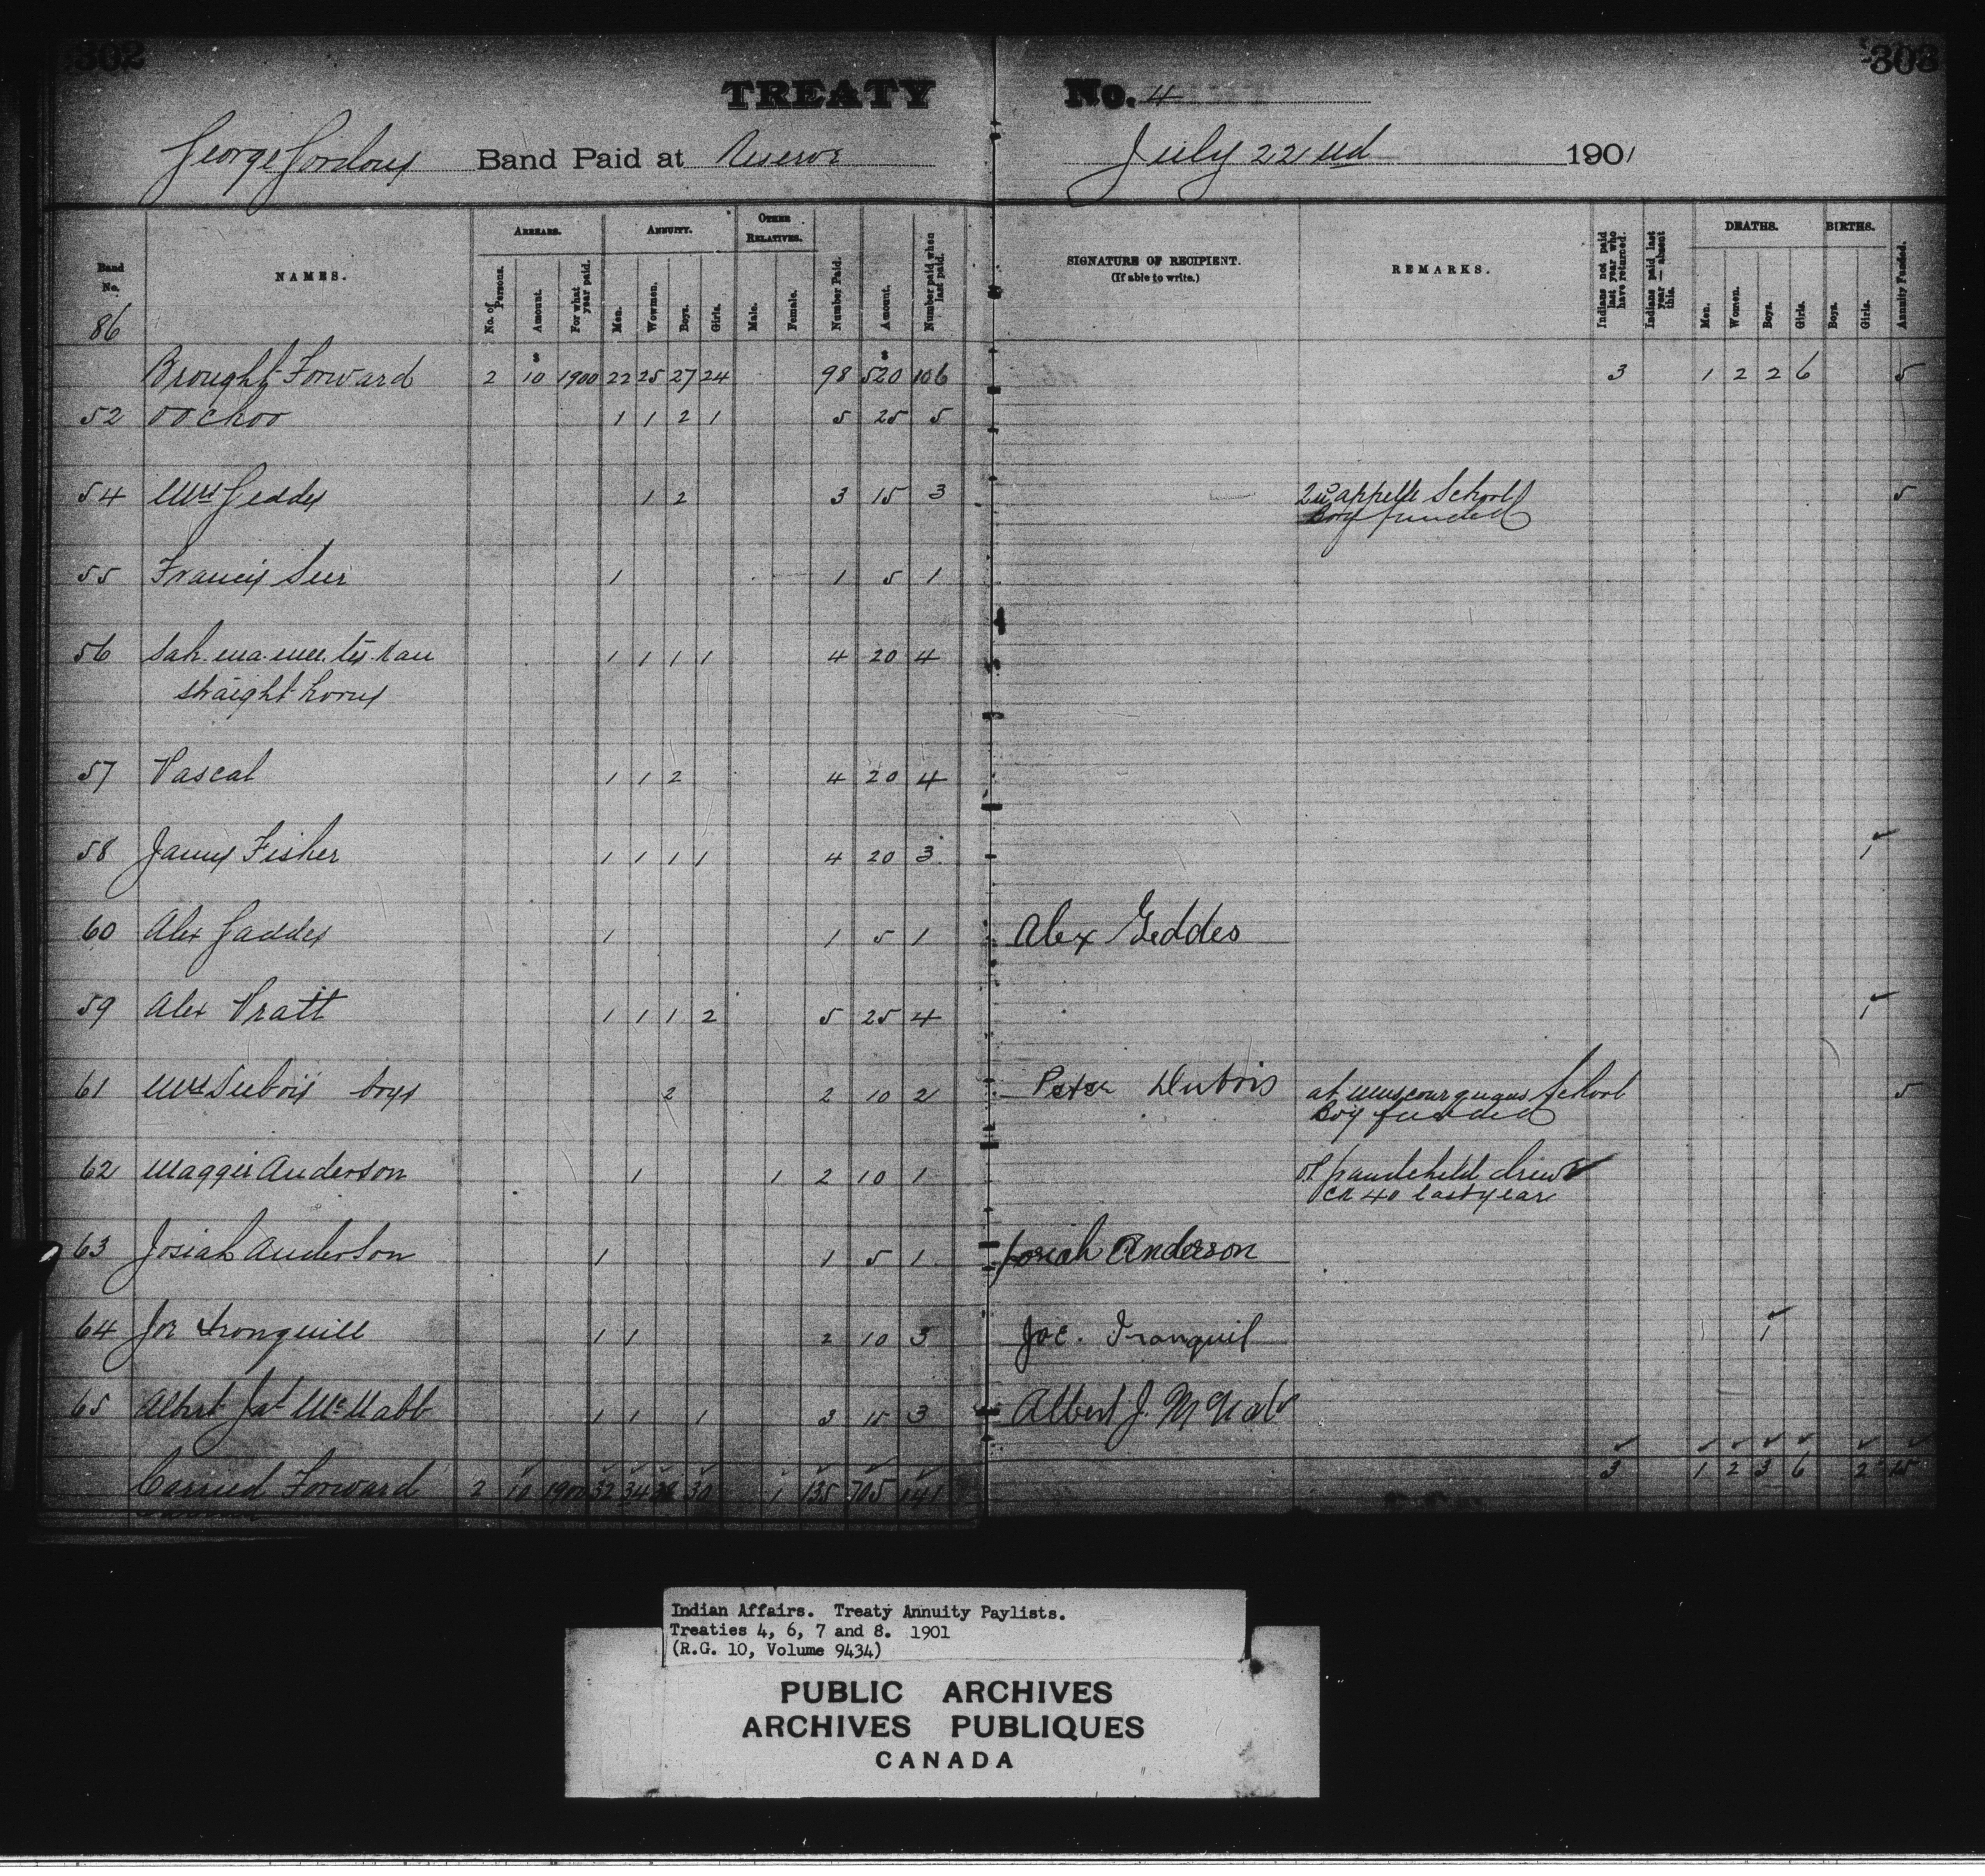 302
303
TREATY No. 4
George Gordons Band Paid at Reserve July 22nd 1901
Band No.
NAMES.
ARREARS.
No. of Persons.
Amount.
For what year paid.
ANNUITY.
Men.
Wowmen.
Boys.
Girls.
OTHER RELATIVES.
Male.
Female.
Number Paid.
Amount.
Number paid when last paid.
SIGNATURE OF RECIPIENT.
(If able to write.)
REMARKS.
Indians not paid last year who have returned.
Indians paid last year — absent this.
DEATHS.
Men.
Women.
Boys.
Girls.
BIRTHS.
Boys.
Girls.
Annuity Funded.
86
$ $
Brought Forward 2 10 1900 22 25 27 24 98 520 106 3 1 2 2 6 5
52 oochoo 1 1 2 1 5 25 5
54 Mrs Geddes 1 2 3 15 3 Qu'appelle School 5
Boy funded
55 Francis 1 1 5 1
56 1 1 1 1 4 20 4
straight horns
57 Pascal 1 1 2 4 20 4
58 James Fisher 1 1 1 1 4 20 3 1
60 Alex Gaddes 1 1 5 1 Alex Geddes
59 Alex Pratt 1 1 1 2 5 25 4 1
61 Mrs Dubois boys 2 2 10 2 Peter Dubois at School 5
Boy funded
62 Maggie Anderson 1 1 2 10 1 grandchild drew
40 last year
63 Josiah Anderson 1 1 5 1 Josiah Anderson
64 Joe Tronquill 1 1 2 10 3 Joe. Tranquil 1
65 Albert Jas McNabb 1 1 1 3 15 3 Albert J. McNab
Carried Forward 2 10 1900 32 34 30 1 135 705 141 3 1 2 3 6 2 15
Indian Affairs. Treaty Annuity Paylists.
Treaties 4, 6, 7 and 8. 1901
(R.G. 10, Volume 9434)
PUBLIC ARCHIVES
ARCHIVES PUBLIQUES
CANADA